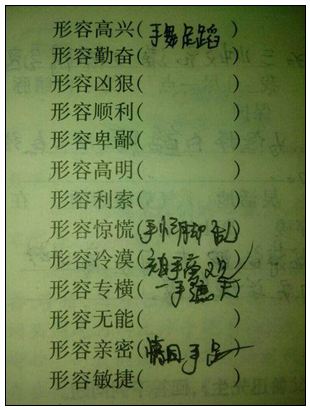 形容高兴(手舞足蹈)
形容勤奋(      )
形容凶狠(      )
形容顺利(      )
形容卑鄙(      )
形容高明(      )
形容利索(      )
形容惊慌(手忙脚乱)
形容冷漠(袖手旁观)
形容专横(一手遮天)
形容无能(      )
形容亲密(情同手足)
形容敏捷(      )